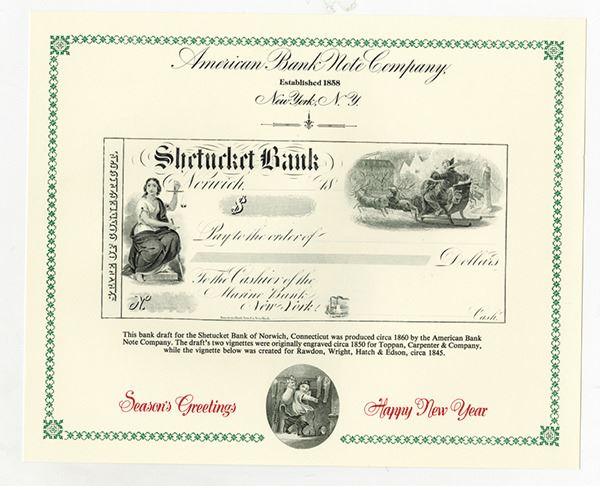 American Bank Note Company.
Established 1858
New York, N.Y.
Shetucket Bank
Norwich, 18
$
Pay to the order of
Dollars
To the Cashier of the
Marine Bank
New York
No
Cash.
This bank draft for the Shetucket Bank of Norwich, Connecticut was produced circa 1860 by the American Bank
Note Company. The draft's two vignettes were originally engraved circa 1850 for Toppan, Carpenter & Company,
while the vignette below was created for Rawdon, Wright, Hatch & Edson, circa 1845.
Season's Greetings
Happy New Year